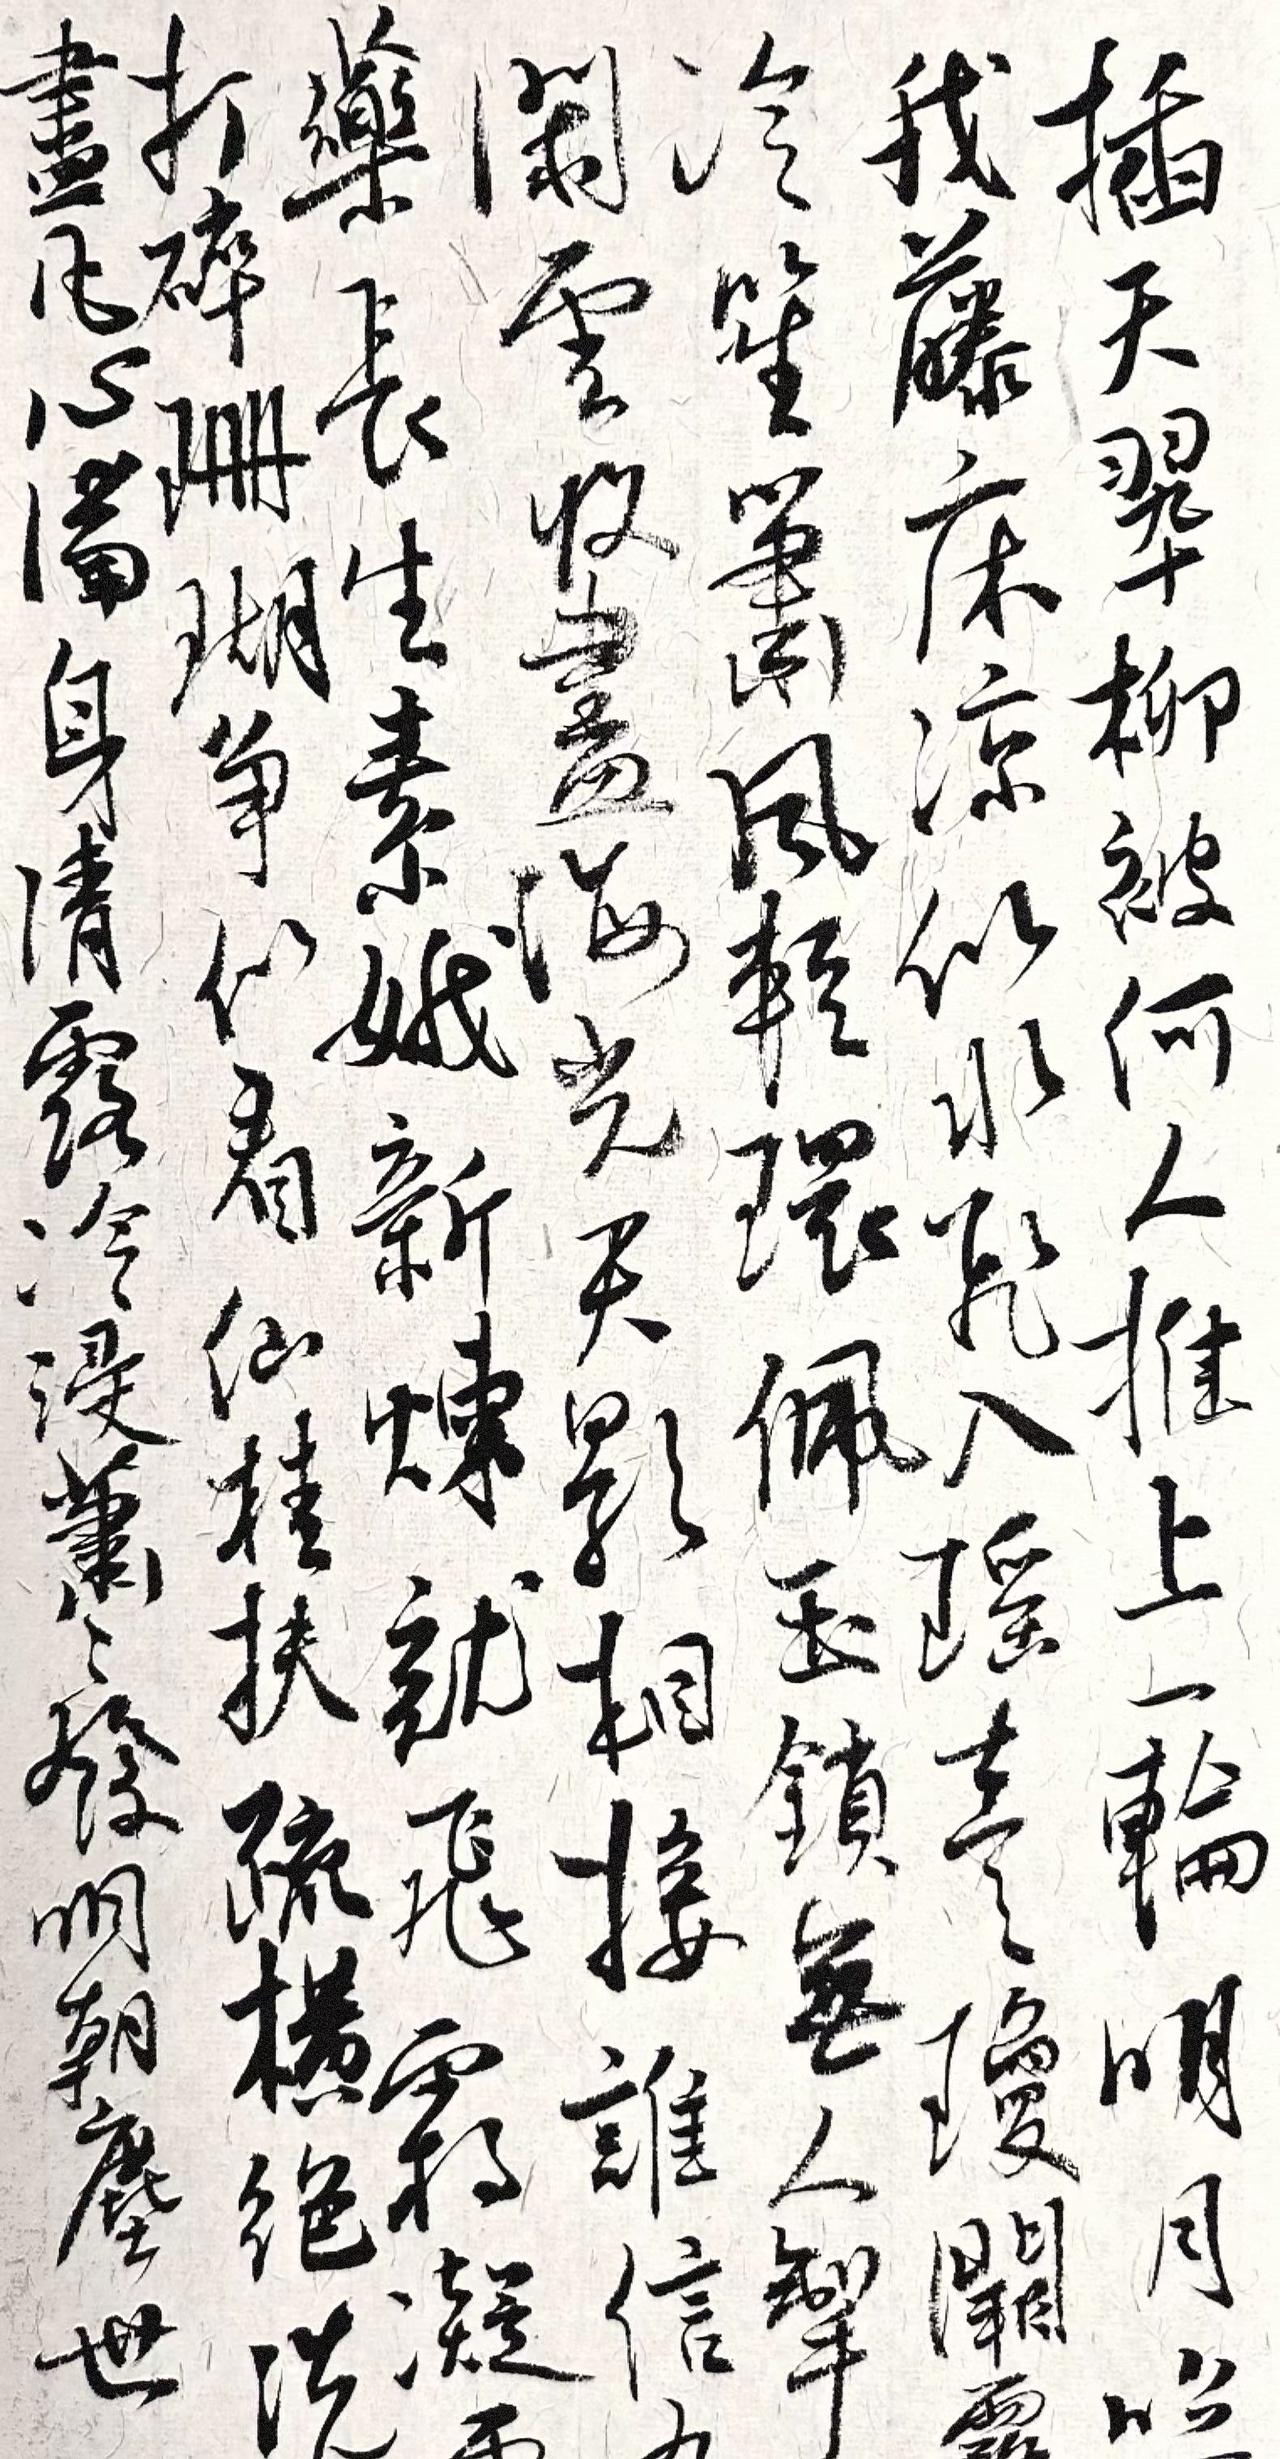 插天翠柳被何人推上一輪明月照
我藤床涼似水飛入瑤臺瓊闕霧
冷笙簫風輕環佩玉鎖無人掣
閑雲收盡海光天影相接誰信有
藥長生素娥新煉就飛霜凝雪
打碎珊瑚爭似看仙桂扶疏橫絕洗
盡凡心滿身清露冷浸蕭〻發明朝塵世